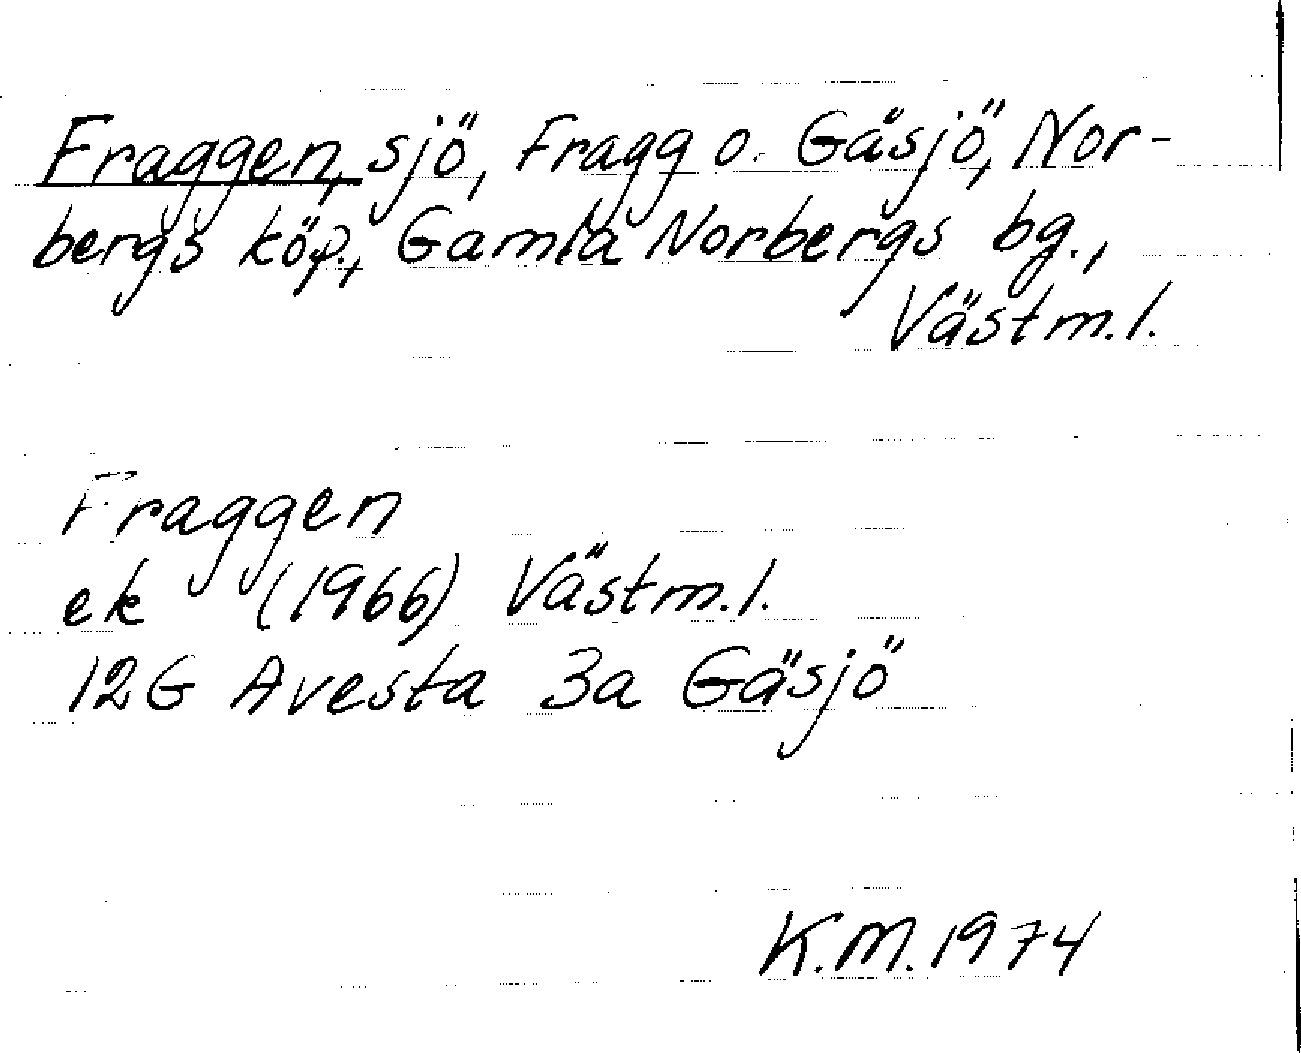 Fraggen, sjö, Fragg o. Gåsjö, Nor-
bergs köp., Gamla Norbergs bg.,
Västm.l.
Fraggen
ek (1966) Västm.l.
12G Avesta 3a Gäsjö
K.M. 1974